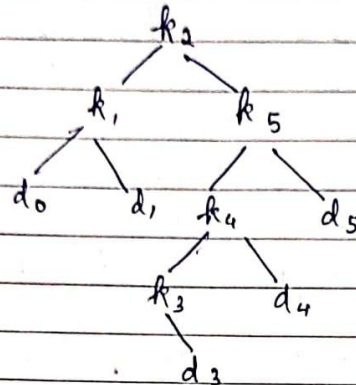 k2
k1 k5
d0 d1 k4 d5
k3 d4
d3